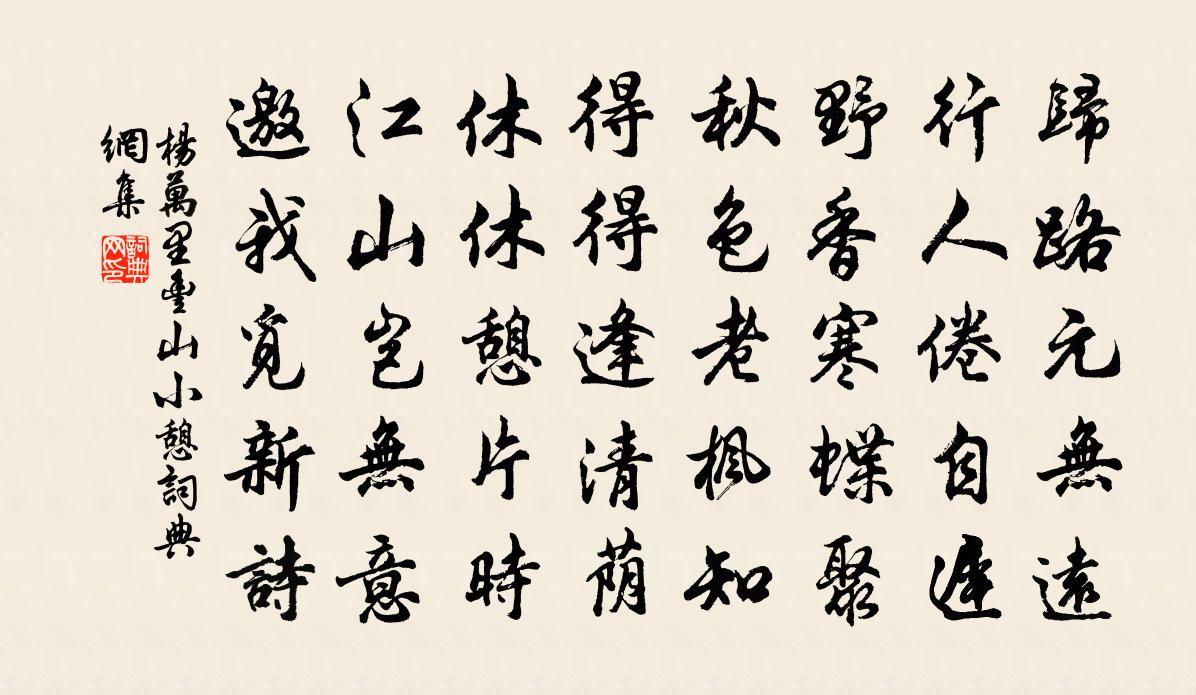 歸路元無遠
行人倦自遲
野香寒蝶聚
秋色老楓知
得得逢清蔭
休休憩片時
江山豈無意
邀我覓新詩
楊萬里豐山小憩詞典
網集
詞典
网印